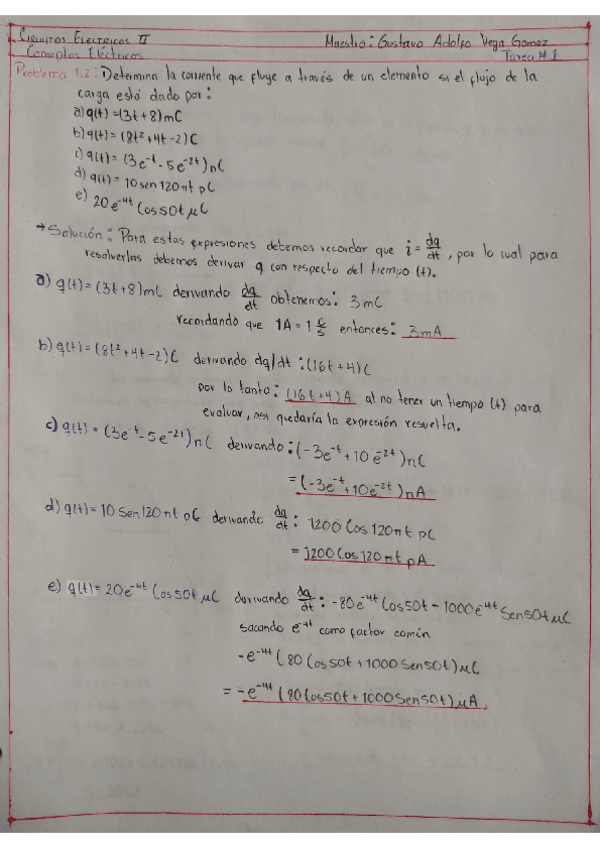 Circuitos Electricos II Maestro: Gustavo Adolfo Vega Gomez
Conceptos Eléctricos Tarea #1
Problema 1.2: Determina la corriente que fluye a través de un elemento si el flujo de la
carga está dado por:
a) q(t) = (3t + 8) mC
b) q(t) = (8t² + 4t - 2) C
c) q(t) = (3e⁻ᵗ - 5e⁻²ᵗ) nC
d) q(t) = 10 sen 120πt pC
e) 20e⁻⁴ᵗ Cos 50t μC
→ Solución: Para estas expresiones debemos recordar que i = dq/dt, por lo cual para
resolverlas debemos derivar q con respecto del tiempo (t).
a) q(t) = (3t + 8) mC derivando dq/dt obtenemos: 3mC
recordando que 1A = 1 C/s entonces: 3mA
b) q(t) = (8t² + 4t - 2) C derivando dq/dt : (16t + 4) C
por lo tanto: (16t + 4) A al no tener un tiempo (t) para
evaluar, asi quedaría la expresión resuelta.
c) q(t) = (3e⁻ᵗ - 5e⁻²ᵗ) nC derivando: (-3e⁻ᵗ + 10e⁻²ᵗ) nC
= (-3e⁻ᵗ + 10e⁻²ᵗ) nA
d) q(t) = 10 Sen 120πt pC derivando dq/dt : 1200 Cos 120πt pC
= 1200 Cos 120πt pA
e) q(t) = 20e⁻⁴ᵗ Cos 50t μC derivando dq/dt : -80e⁻⁴ᵗ Cos 50t - 1000e⁻⁴ᵗ Sen 50t μC
sacando e⁻⁴ᵗ como factor común
-e⁻⁴ᵗ (80 Cos 50t + 1000 Sen 50t) μC
= -e⁻⁴ᵗ (80 Cos 50t + 1000 Sen 50t) μA.